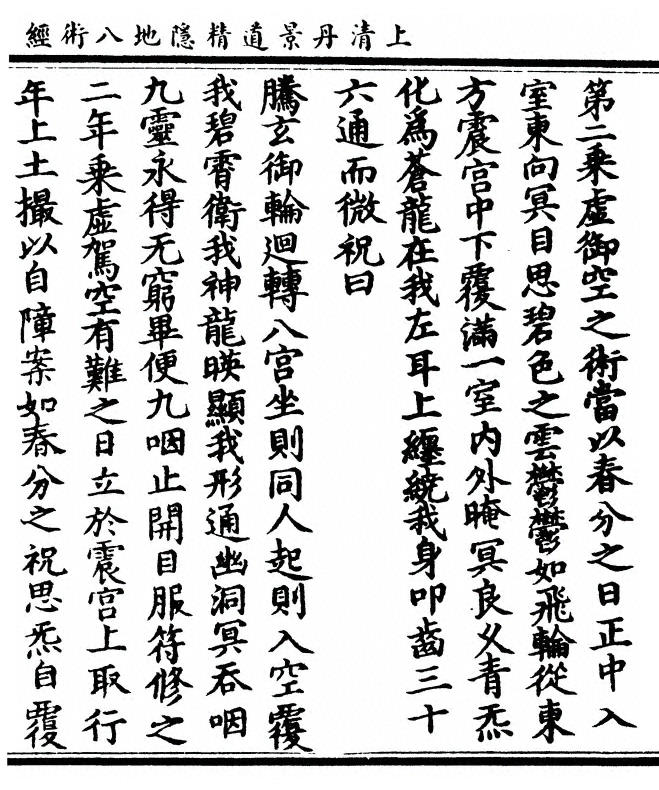 上清丹景道精隱地八術經
第二乘虛御空之術當以春分之日正中入
室東向冥目思碧色之雲鬱鬱如飛輪從東
方震宮中下覆滿一室內外晻冥良乆青炁
化爲蒼龍在我左耳上纏繞我身叩齒三十
六通而微祝曰
騰玄御輪迴轉八宮坐則同人起則入空覆
我碧霄衛我神龍暎顯我形通幽洞冥吞咽
九靈永得无窮畢便九咽止開目服符修之
二年乘虛駕空有難之日立於震宮上取行
年上土撮以自障案如春分之祝思炁自覆